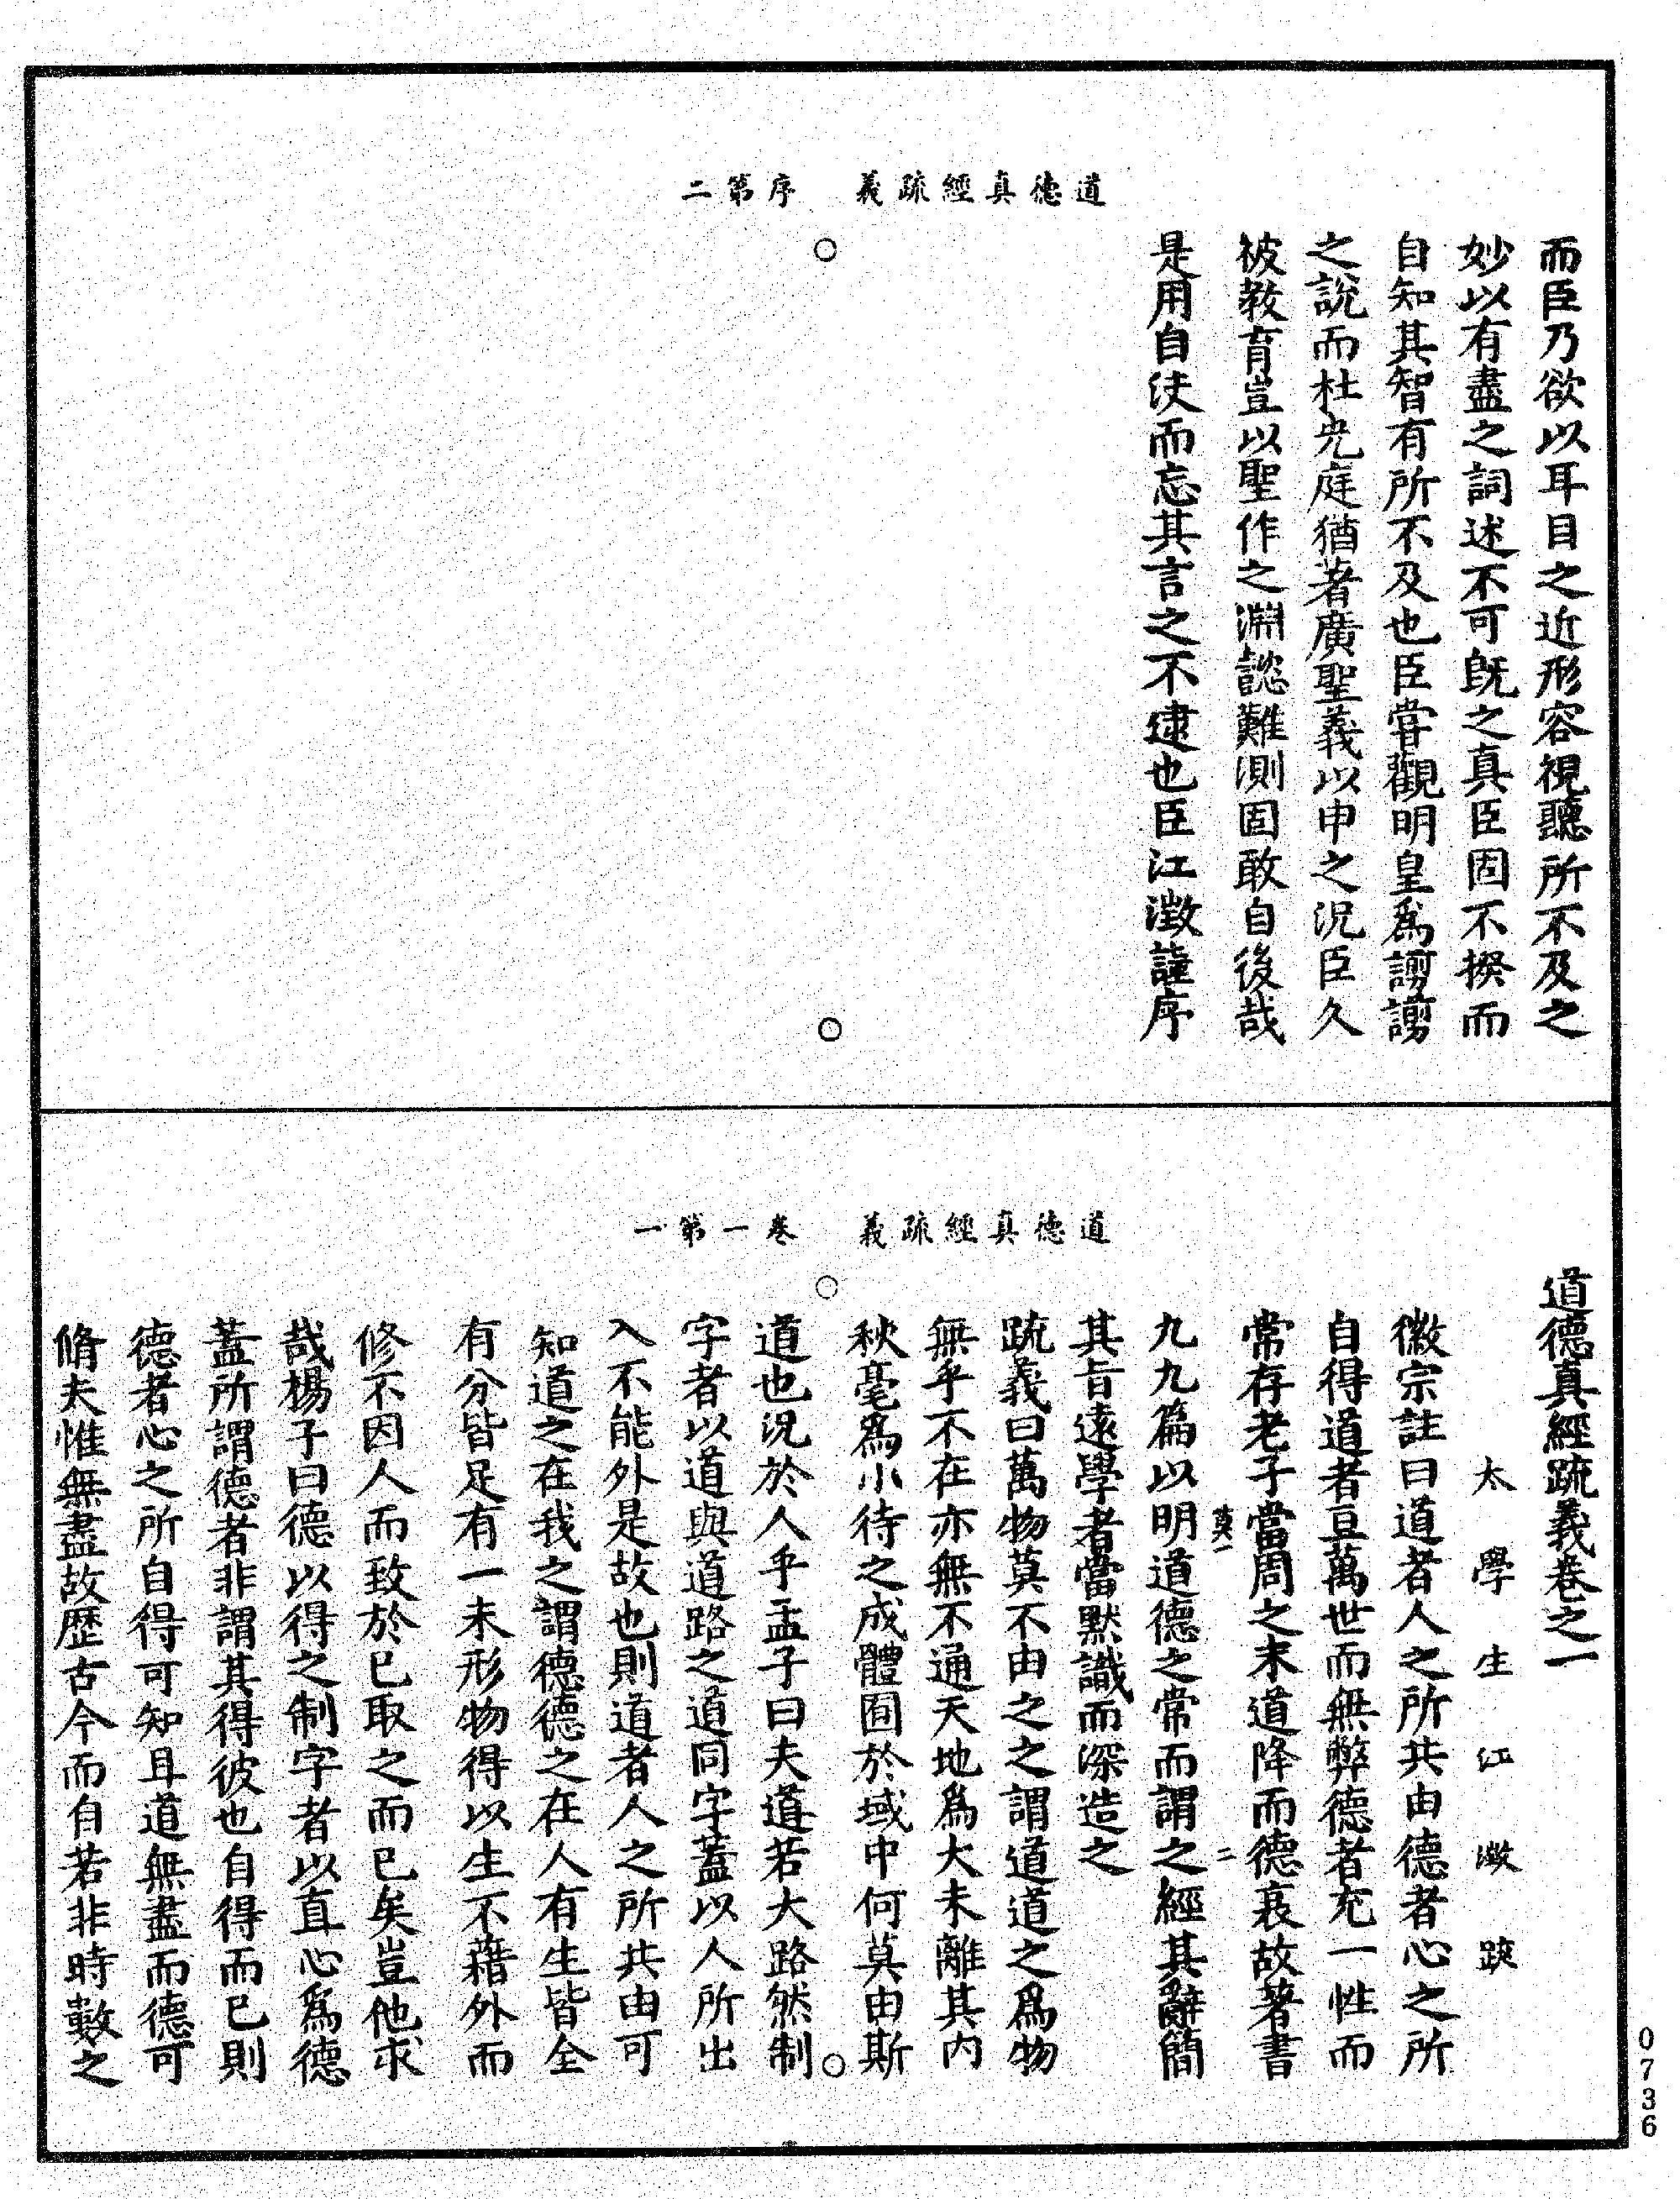 道德真經疏義　序第二
而臣乃欲以耳目之近形容視聽所不及之
妙以有盡之詞述不可旣之真臣固不揆而
自知其智有所不及也臣嘗觀明皇爲謭謭
之說而杜光庭猶著廣聖義以申之況臣久
被教育豈以聖作之淵懿難測固敢自後哉
是用自決而忘其言之不逮也臣江澂謹序
道德真經疏義　卷一第一
道德真經疏義卷之一
太學生江澂疏
徽宗註曰道者人之所共由德者心之所
自得道者亘萬世而無弊德者充一性而
常存老子當周之末道降而德衰故著書
莫一　二
九九篇以明道德之常而謂之經其辭簡
其旨遠學者當默識而深造之
疏義曰萬物莫不由之之謂道道之爲物
無乎不在亦無不通天地爲大未離其内
秋毫爲小待之成體囿於域中何莫由斯
道也況於人乎孟子曰夫道若大路然制
字者以道與道路之道同字蓋以人所出
入不能外是故也則道者人之所共由可
知道之在我之謂德德之在人有生皆全
有分皆足有一未形物得以生不藉外而
修不因人而致於已取之而已矣豈他求
哉楊子曰德以得之制字者以直心爲德
蓋所謂德者非謂其得彼也自得而已則
德者心之所自得可知且道無盡而德可
脩夫惟無盡故歷古今而自若非時數之
0736